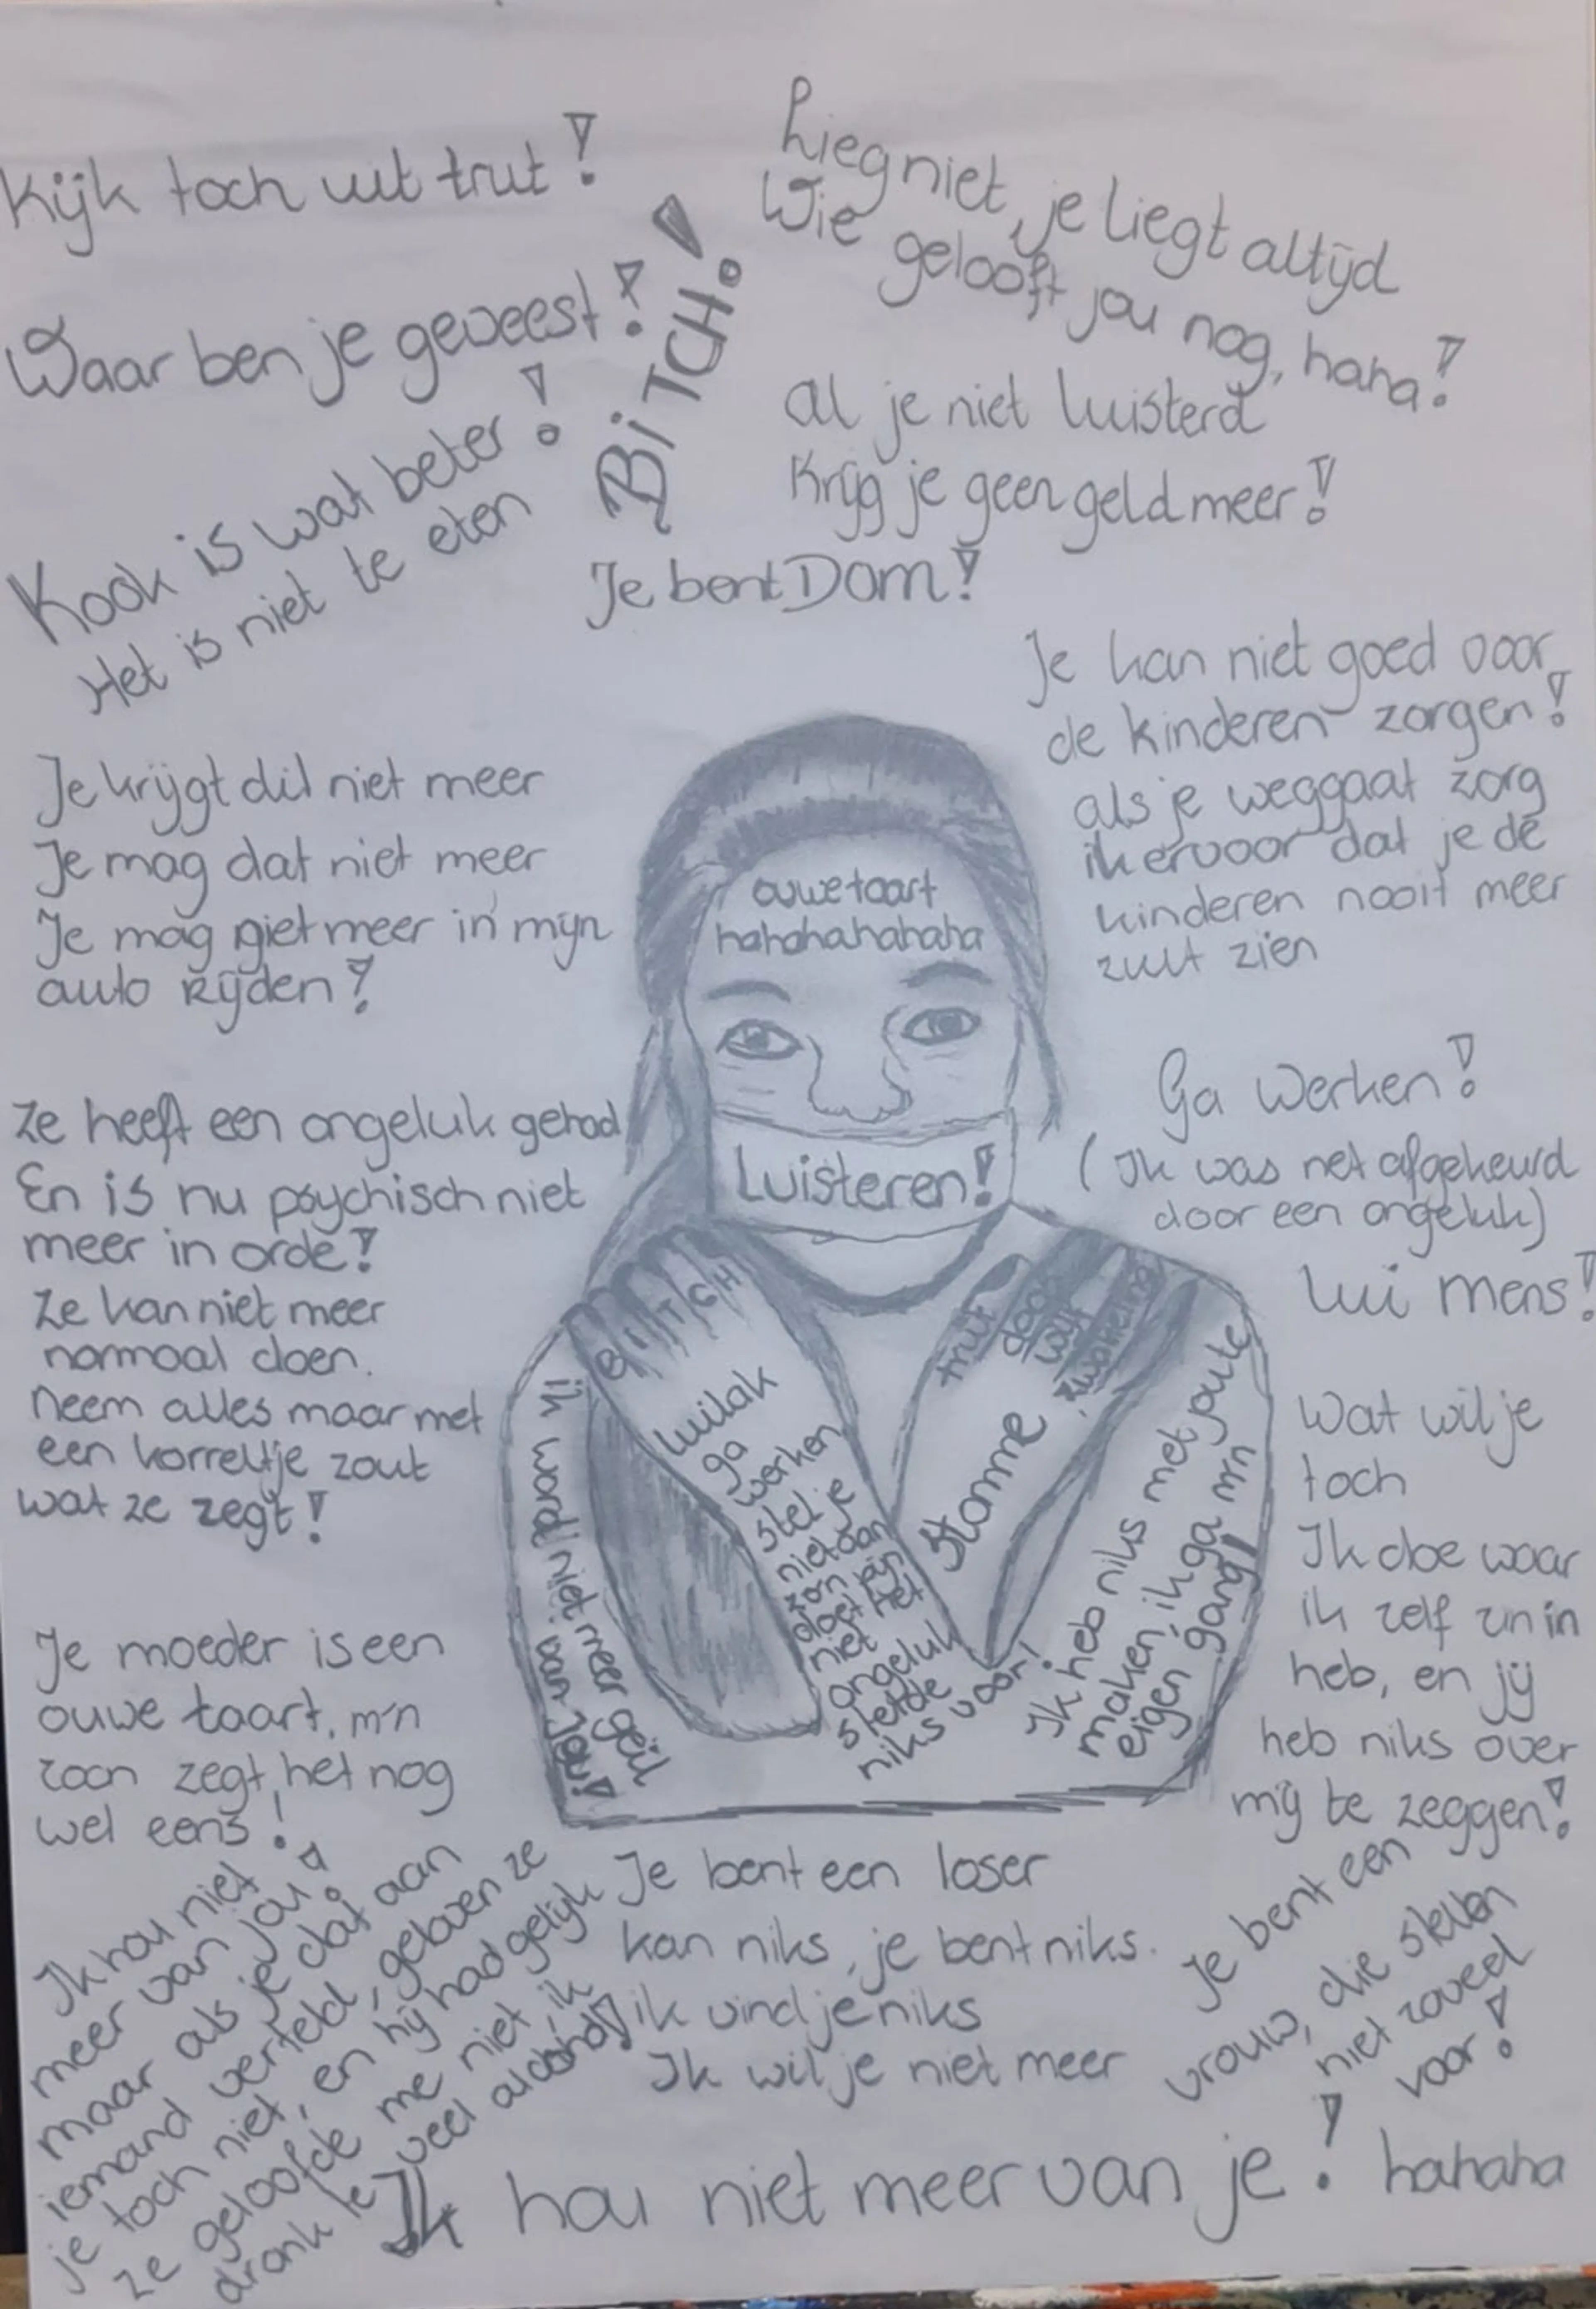 Kijk toch uit trut!
Waar ben je geweest!
Kook is wat beter!
Het is niet te eten
BiTCH!
Lieg niet, je liegt altijd
Wie gelooft jou nog, haha!
Al je niet luisterd
Krijg je geen geld meer!
Je bent Dom!
Je kan niet goed voor
de kinderen zorgen!
als je weggaat zorg
ik ervoor dat je de
kinderen nooit meer
zult zien
Je krijgt dit niet meer
Je mag dat niet meer
Je mag niet meer in mijn
auto Rijden!
ouwe taart
hahahahahaha
Luisteren!
Ga Werken!
(Ik was net afgekeurd
door een ongeluk)
Lui mens!
Ze heeft een ongeluk gehad
En is nu psychisch niet
meer in orde!
Ze kan niet meer
normaal doen.
neem alles maar met
een korreltje zout
wat ze zegt!
BITCH
luilak
ga
werken
stel je
niet aan
zon pijn
doet het
niet
ongeluk
stelde
niks voor!
trut
doos
wijf
Stomme
Ik word niet meer geil
van Jou!
Ik heb niks met joute
maken, ik ga m'n
eigen gang!
Wat wil je
toch
Ik doe waar
ik zelf zin in
heb, en jij
heb niks over
mij te zeggen!
Je moeder is een
ouwe taart, m'n
zoon zegt het nog
wel eens!
Ik hou niet
meer van jou!
maar als je dat aan
iemand verteld, geloven ze
je toch niet, en hij had gelijk
ze geloofde me niet, ik
drank te veel alcohol!
Je bent een loser
kan niks, je bent niks.
ik vind je niks
Ik wil je niet meer
Je bent een
vrouw, die stellen
niet zoveel
voor!
Ik hou niet meer van je! hahaha